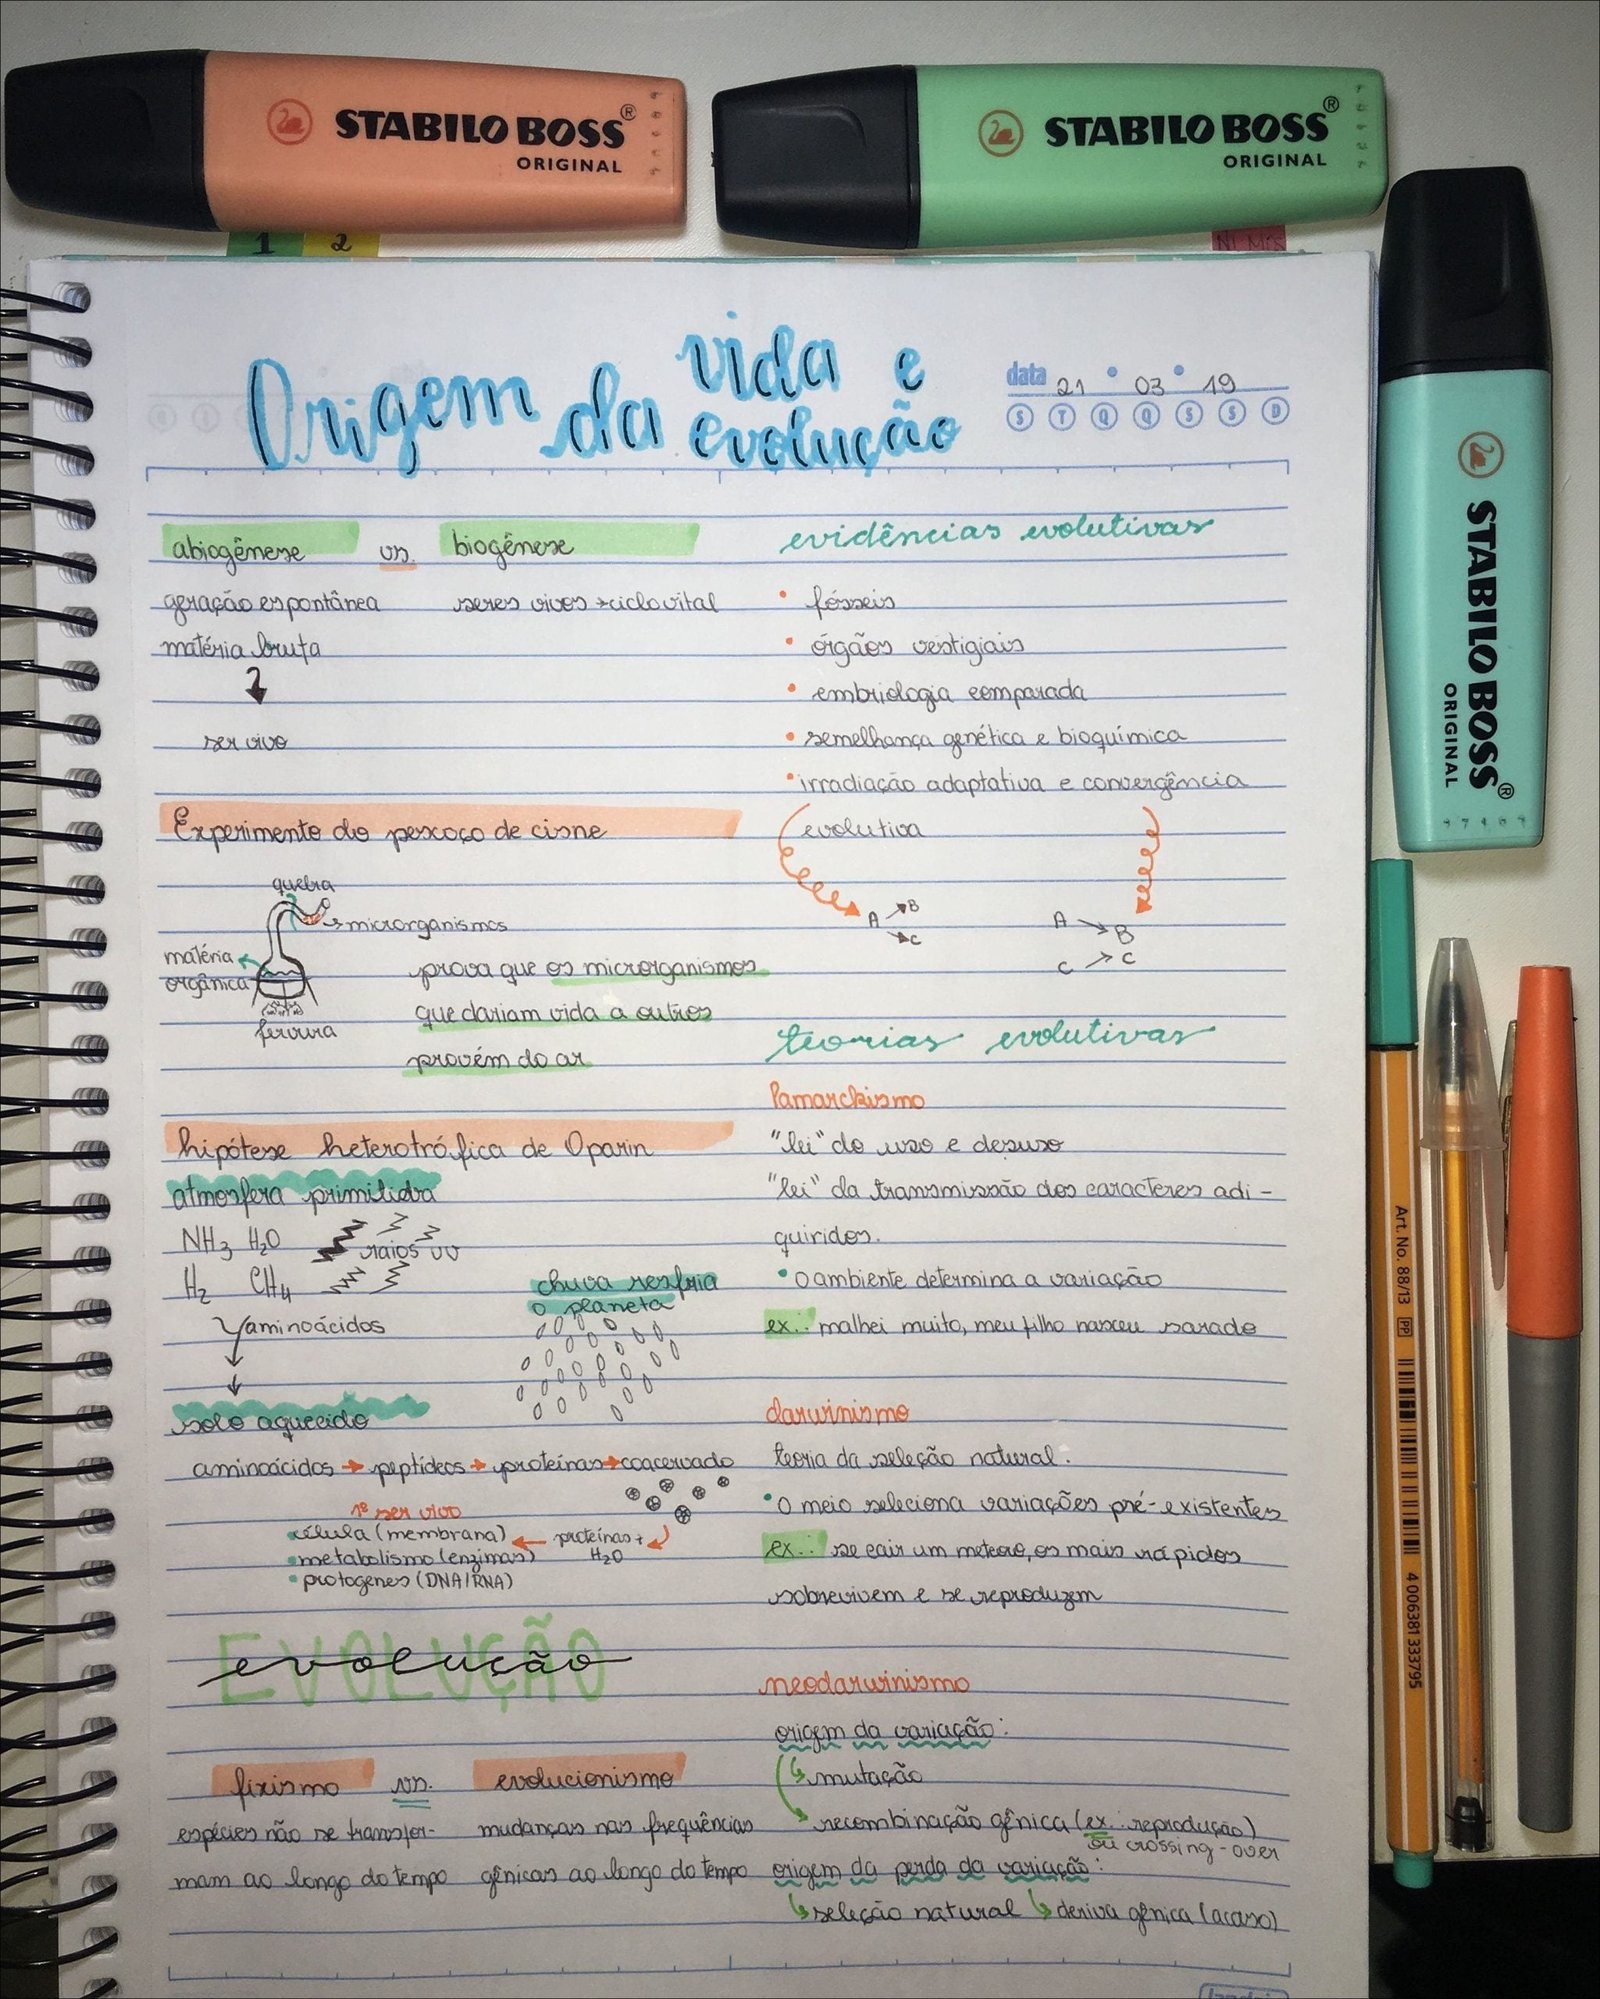 STABILO BOSS®
ORIGINAL
STABILO BOSS®
ORIGINAL
STABILO BOSS®
ORIGINAL
1
2
Origem da vida e
evolução
data 21 03 19
S T Q Q S S D
abiogênese vs. biogênese
geração espontânea
matéria bruta
ser vivo
seres vivos → ciclo vital
Experimento do pescoço de cisne
quebra
microrganismos
matéria
orgânica
fervura
prova que os microrganismos
que dariam vida a outros
provém do ar
hipótese heterotrófica de Oparin
atmosfera
NH3 H2O
H2 CH4
raios UV
aminoácidos
chuva resfria
o planeta
solo aquecido
aminoácidos → peptídeos → proteínas → coacervado
proteínas +
H2O
1º ser vivo
célula (membrana)
• metabolismo (enzimas)
• protogenes (DNA/RNA)
EVOLUÇÃO
evolução
fixismo vs. evolucionismo
espécies não se transfor-
mam ao longo do tempo
mudanças nas frequências
gênicas ao longo do tempo
evidências evolutivas
• fósseis
• órgãos vestigiais
• embriologia comparada
• semelhança genética e bioquímica
• irradiação adaptativa e convergência
evolutiva
A → B
→ C
A → B
C → C
teorias evolutivas
lamarckismo
"lei" do uso e desuso
"lei" da transmissão dos caracteres adi-
quiridos.
• o ambiente determina a variação
ex.: malhei muito, meu filho nasceu sarado
darwinismo
teoria da seleção natural.
• o meio seleciona variações pré-existentes
ex.: se cair um meteoro, os mais rápidos
sobrevivem e se reproduzem
neodarwinismo
origem da variação:
mutação
recombinação gênica (ex.: reprodução)
ou crossing-over
origem da perda da variação:
seleção natural deriva gênica (acaso)
Art. No. 88/13 PP
4 006381 333795